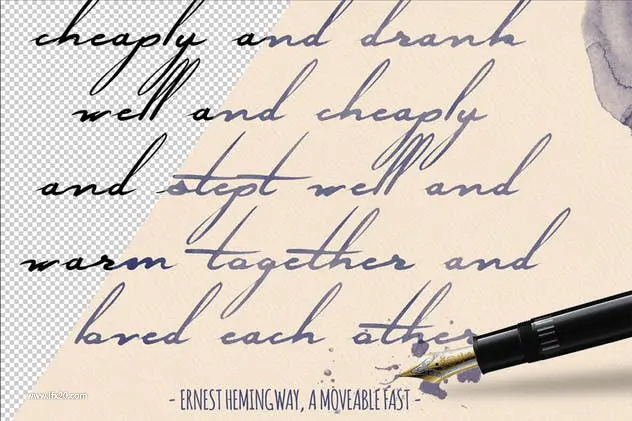 cheaply and drank
well and cheaply
and stept well and
warm together and
loved each other
- ERNEST HEMINGWAY, A MOVEABLE FAST -
www.lfx20.com